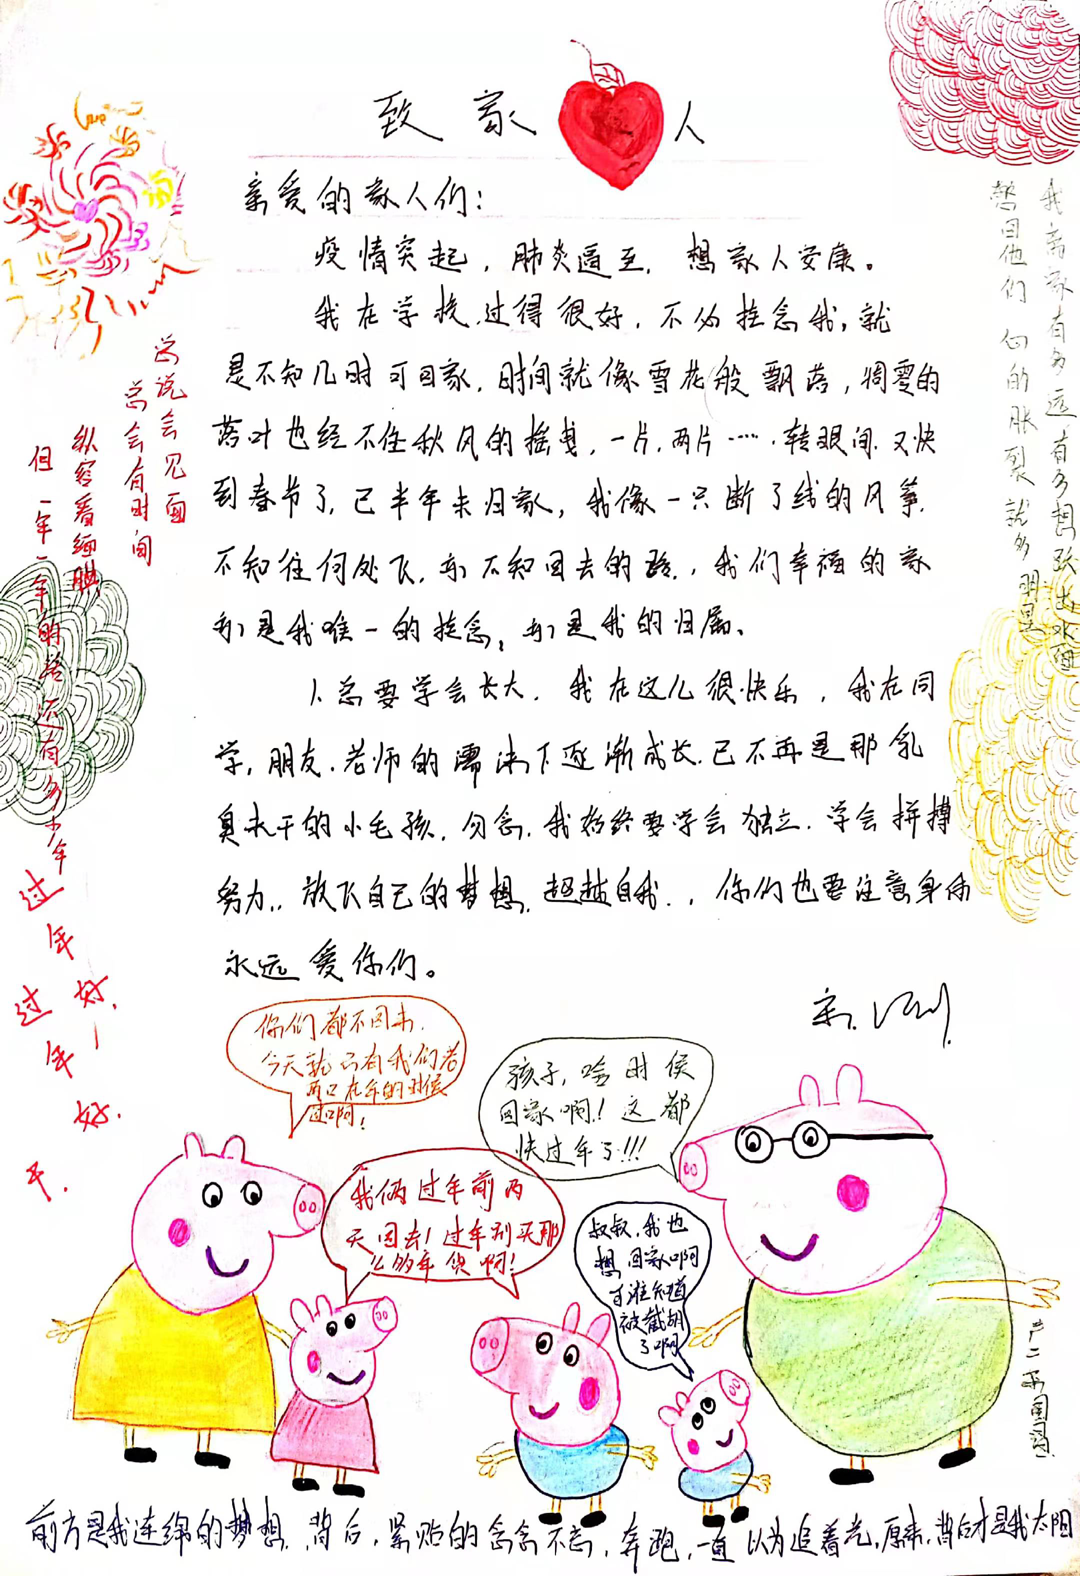 致家人
亲爱的家人们：
疫情突起，肺炎逼至，想家人安康。
我在学校过得很好，不必挂念我，就
是不知几时可回家，时间就像雪花般飘落，凋零的
落叶也经不住秋风的摇曳，一片，两片……转眼间又快
到春节了，已半年未归家，我像一只断了线的风筝，
不知往何处飞，亦不知回去的路，我们幸福的家
亦是我唯一的挂念，亦是我的归属。
人总要学会长大，我在这儿很快乐，我在同
学，朋友，老师的濡沫下逐渐成长，已不再是那乳
臭未干的小毛孩，勿念，我始终要学会独立，学会拼搏
努力，放飞自己的梦想，超越自我，你们也要注意身体
永远爱你们。
总说会见面
总会有时间
纵容着缅腆
但一年一年的落还有多少年
过年好，
过年好！
我离家有多远有多想跃出水面
愁回他们的胀裂就多明显
你们都不回来，
今天就只有我们老
两口在年的时候
过啊！
孩子，啥时侯
回家啊！这都
快过年了！！！
我俩过年前两
天回去！过年别买那
么多年货啊！
叔叔，我也
想回家啊
可谁知道
被截胡
了啊
前方是我连绵的梦想，背后，紧贴的念念不忘，奔跑，一直以为追着光，原来，背后才是我太阳